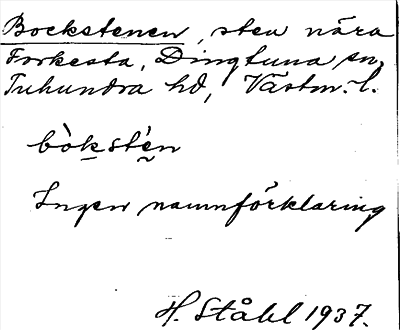 Bockstenen, sten nära
Forkesta, Dingtuna sn,
Tuhundra hd, Västm. l.
bòkstèn
Ingen namnförklaring
H. Ståhl 1937.